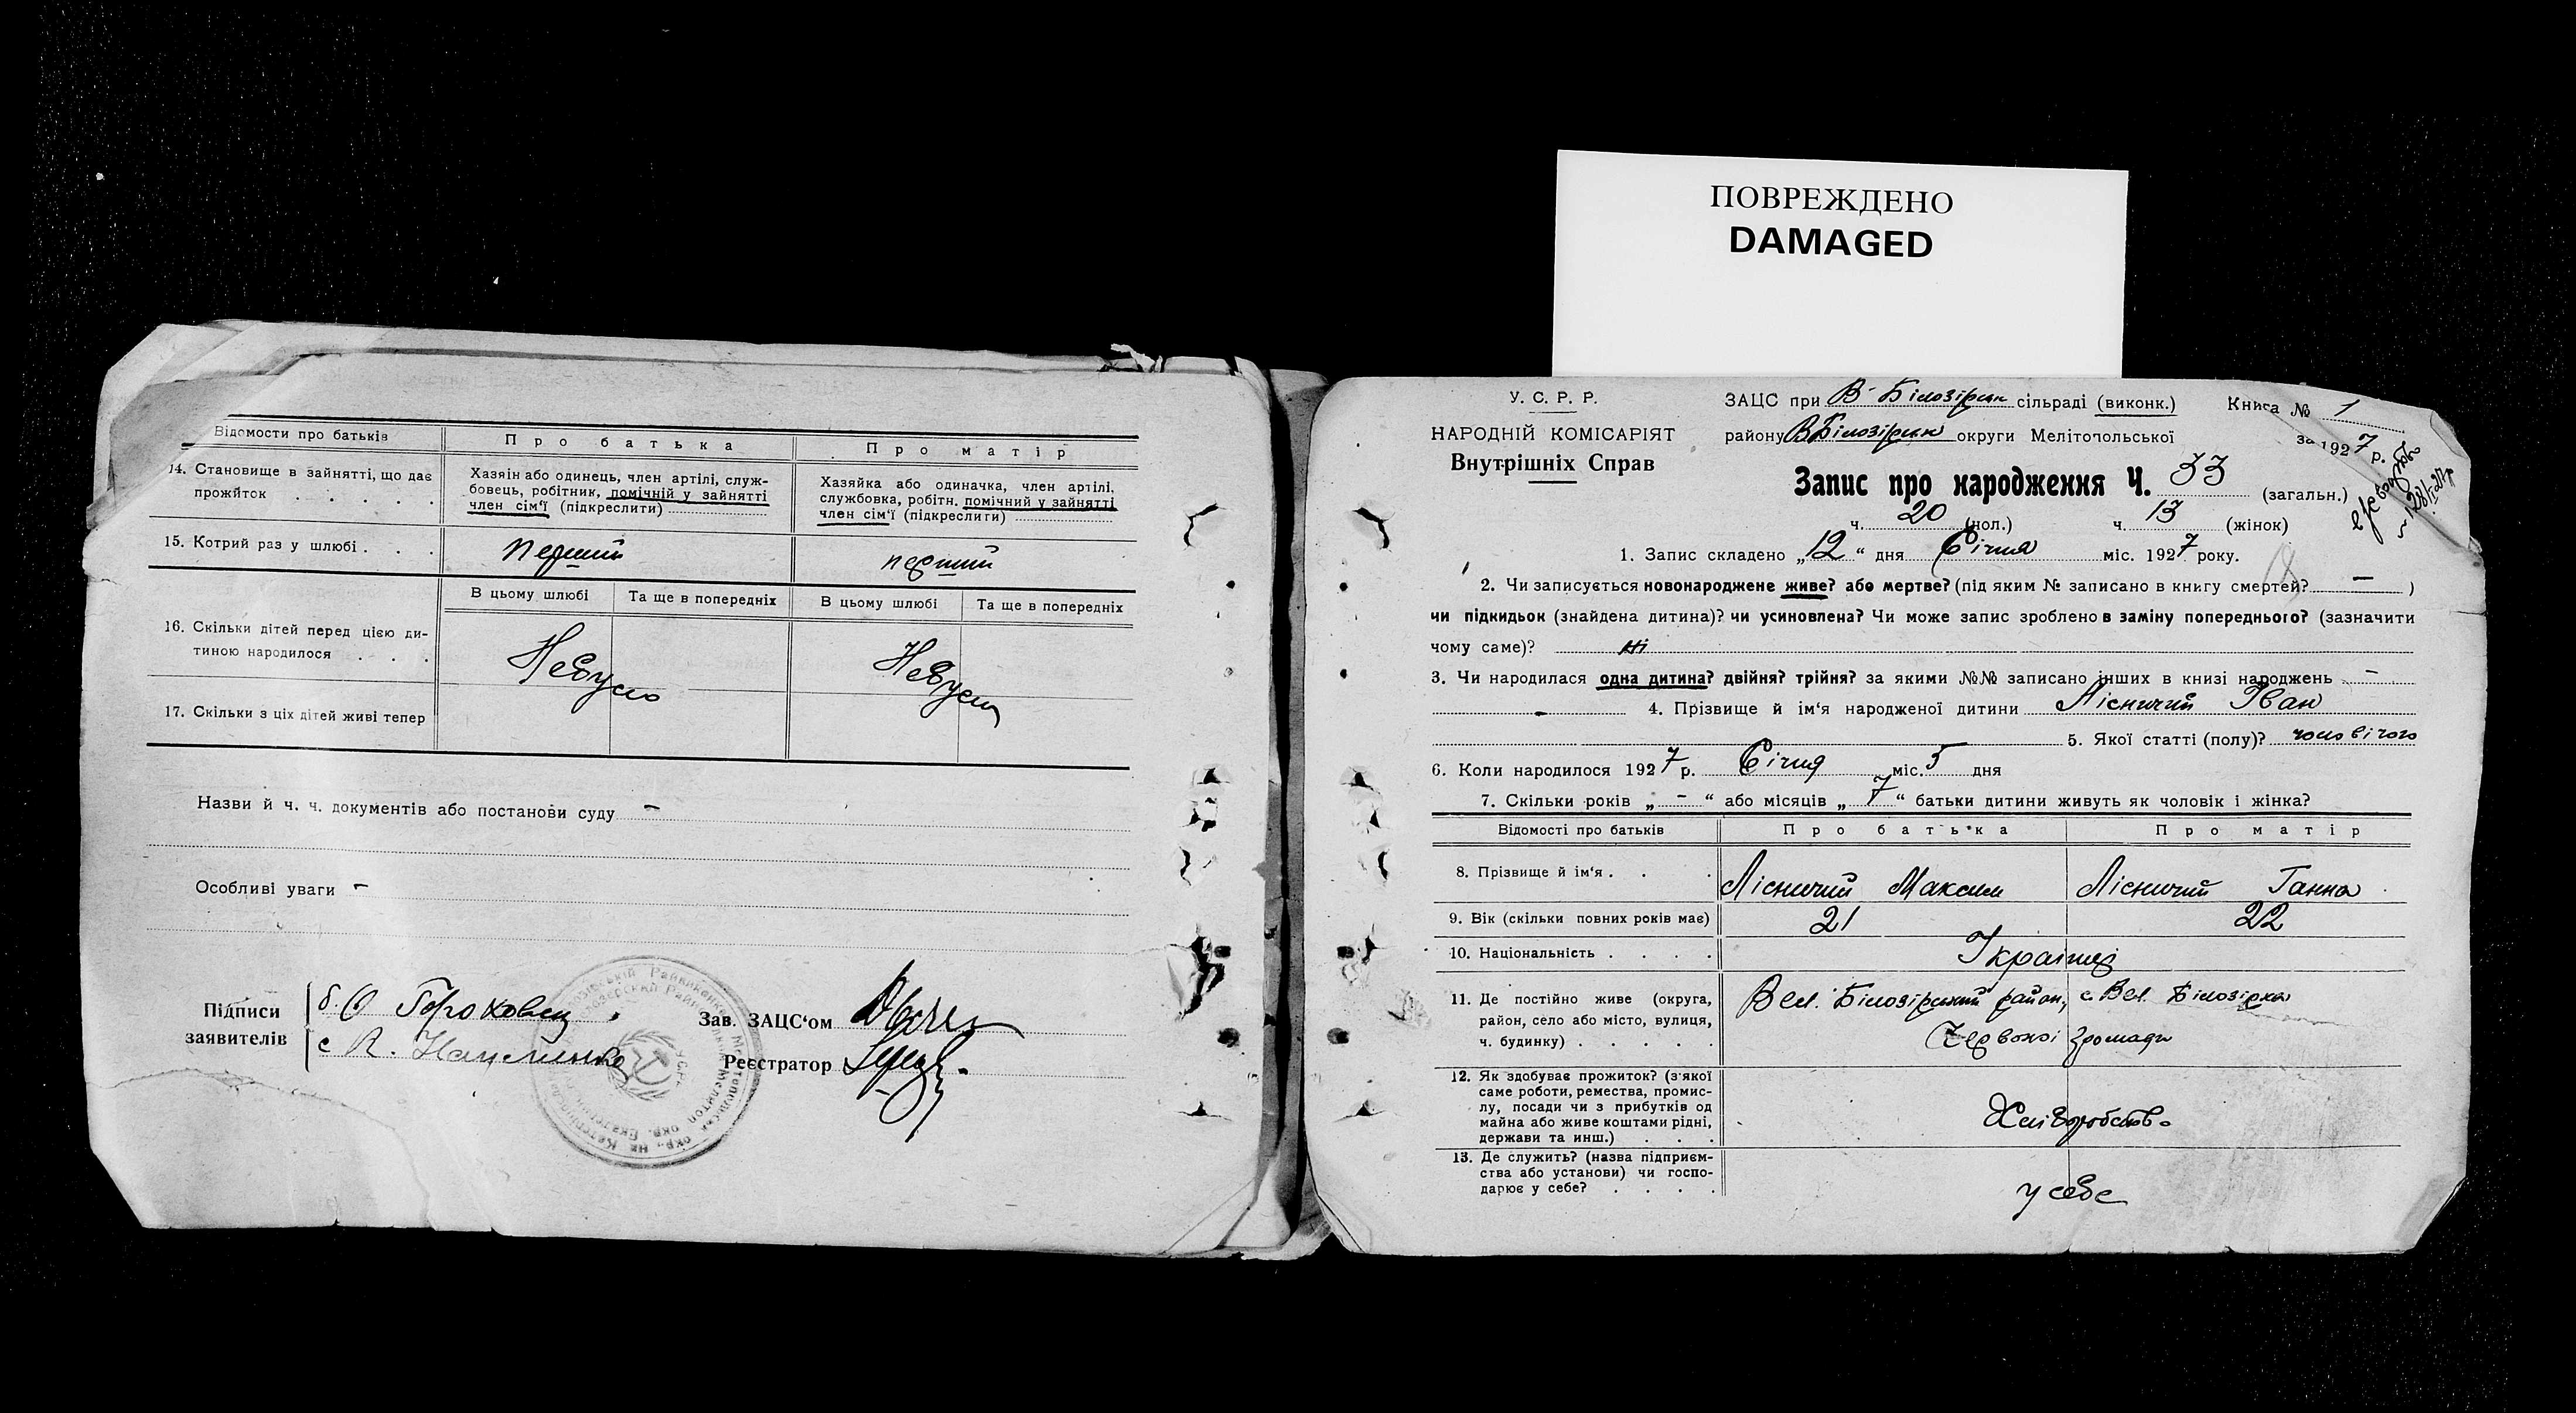 ПОВРЕЖДЕНО
DAMAGED
Відомости про батьків
Про батька
Про матір
14. Становище в зайнятті, що дає
прожиток . . . . .
Хазяін або одинець, член артілі, служ-
бовець, робітник, помічній у зайнятті
член сім'ї (підкреслити)
Хазяйка або одиначка, член артілі,
службовка, робітн. помічний у зайнятті
член сім'ї (підкреслити)
15. Котрий раз у шлюбі . . .
перший
перший
В цьому шлюбі
Та ще в попередніх
В цьому шлюбі
Та ще в попередніх
16. Скільки дітей перед цією ди-
тиною народилося . . .
Небуло
Небуло
17. Скільки з ціх дітей живі тепер
Назви й ч. ч. документів або постанови суду –
Особливі уваги –
Підписи
заявителів
Зав. ЗАЦС'ом
Реєстратор
У. С. Р. Р.
НАРОДНІЙ КОМІСАРІЯТ
Внутрішніх Справ
ЗАЦС при В-Білозірск сільраді (виконк.)
Книга № 1
району ВБілозірск округи Мелітопольської
за 1927 р.
Запис про народження Ч. 33 (загальн.)
ч. 20 (чол.) ч. 13 (жінок)
1. Запис складено „12“ дня Січня міс. 1927 року.
2. Чи записується новонароджене живе? або мертве? (під яким № записано в книгу смертей? – )
чи підкидьок (знайдена дитина)? чи усиновлена? Чи може запис зроблено в заміну попереднього? (зазначити
чому саме)? ні
3. Чи народилася одна дитина? двійня? трійня? за якими №№ записано інших в книзі народжень –
– 4. Прізвище й ім'я народженої дитини Лісничий Іван
5. Якої статті (полу)? чоловічого
6. Коли народилося 1927 р. Січня міс. 5 дня
7. Скільки років „–“ або місяців „7“ батьки дитини живуть як чоловік і жінка?
Відомості про батьків
Про батька
Про матір
8. Прізвище й ім'я . . .
Лісничий Максим
Лісничий Ганна
9. Вік (скільки повних років має)
21
22
10. Національність . . . .
Українці
11. Де постійно живе (округа,
район, село або місто, вулиця,
ч. будинку) . . . . .
Вел. Білозірський район, с. Вел. Білозірка
Червоної громади
12. Як здобуває прожиток? (з якої
саме роботи, ремества, промис-
лу, посади чи з прибутків од
майна або живе коштами рідні,
держави та инш.) . . .
Хліборобство
13. Де служить? (назва підприєм-
ства або установи) чи госпо-
дарює у себе? . . . .
у себе